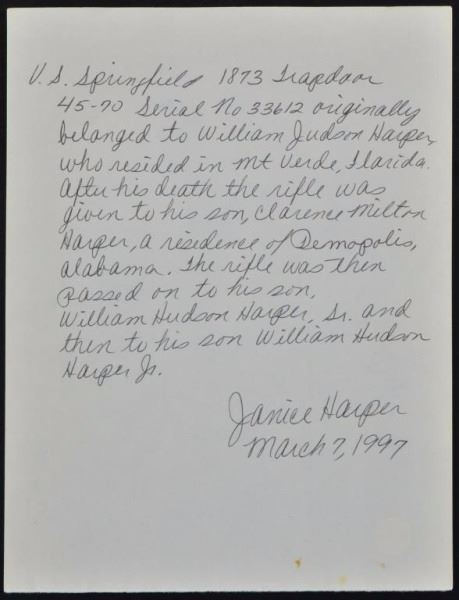 U.S. Springfield 1873 Trapdoor
45-70 Serial No 33612 originally
belonged to William Judson Harper,
who resided in Mt Verde, Florida.
After his death the rifle was
given to his son, Clarence Milton
Harper, a residence of Demopolis,
Alabama. The rifle was then
passed on to his son,
William Hudson Harper, Sr. and
then to his son William Hudson
Harper Jr.
Janice Harper
March 7, 1997